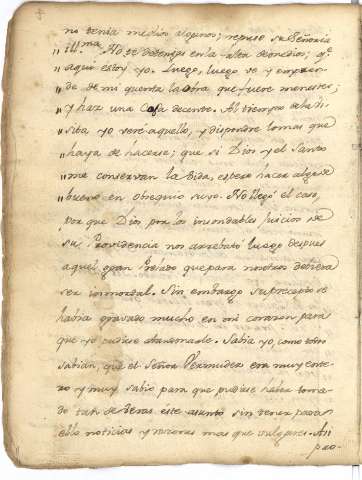 no tenia medios algunos; repuso su Señoria
Ill.ma No te detengas en la falta de medios; q.e
" aqui estoy yo. Luego, luego ve y empren-
" de de mi quenta la obra que fuere menester;
" y haz una Casa decente. Al tiempo de la vi-
" sita yo veré aquello, y dispondre lo mas que
" haya de hacerse; que si Dios y el Santo
" me conservan la vida, espero hacer algo de
" bueno en obsequio suyo. No llegó el caso,
por que Dios por los insondables juicios de
su Providencia nos arrebató luego despues
aquel gran Prelado que para nosotros debiera
ser inmortal. Sin embargo su precepto se
habia gravado mucho en mi corazon para
que yo pudiese abandonarle. Sabia yo, como todos
sabian, que el Señor Bermudez era muy ente-
ro y muy sabio para que pudiese haber toma-
do tan de veras este asunto sin tener para
ello noticias y razones mas que vulgares. Asi
pro-